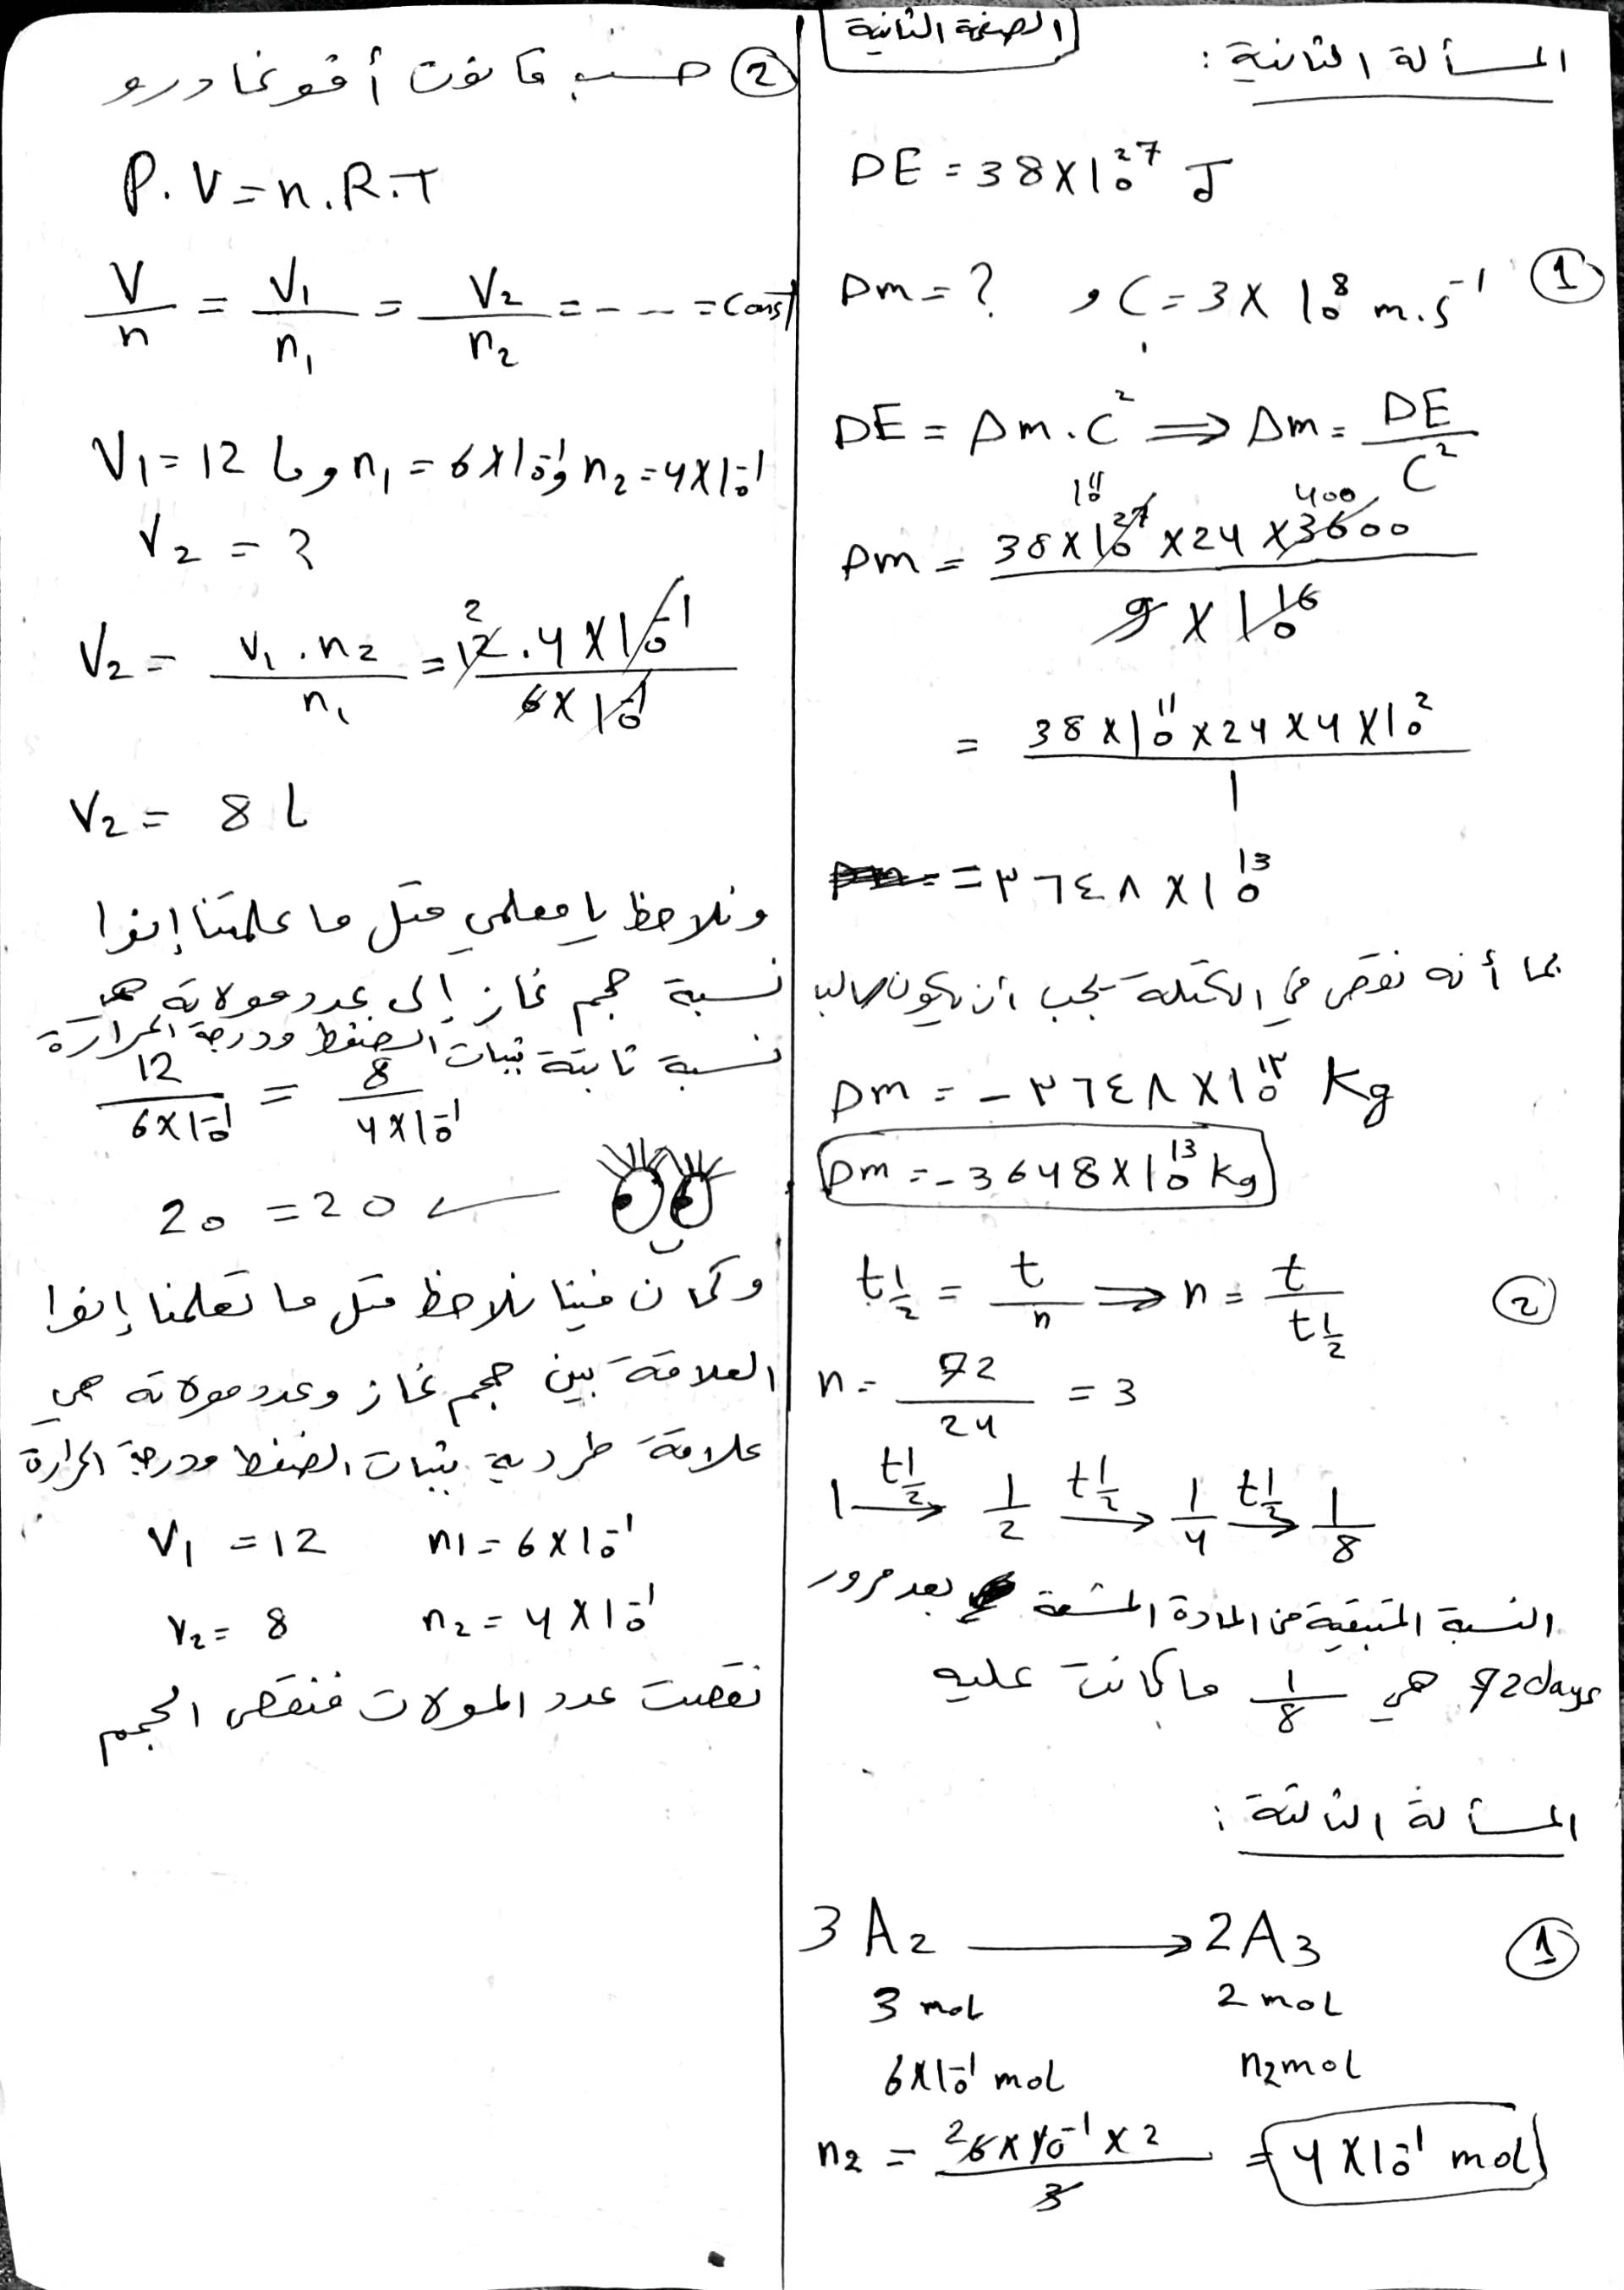 الصفحة الثانية
المسألة الثانية :
DE = 38 X 10^27 J
① Dm = ? و C = 3 X 10^8 m.s^-1
DE = Dm . C^2 ⇒ Δm = DE / C^2
Dm = 38 X 10^27 X 24 X 3600 / 9 X 10^16
10^11 400
= 38 X 10^11 X 24 X 4 X 10^2 / 1
= ٣٦٤٨ X 10^13
بما أنه نقص في الكتلة يجب أن يكون سالب
Dm = - ٣٦٤٨ X 10^١٣ Kg
Dm = - 3648 X 10^13 Kg
② t1/2 = t / n ⇒ n = t / t1/2
n = 72 / 24 = 3
1 →(t1/2) 1/2 →(t1/2) 1/4 →(t1/2) 1/8
النسبة المتبقية من المادة المشعة بعد مرور
72 days هي 1/8 ما كانت عليه
المسألة الثالثة :
① 3 A2 → 2 A3
3 mol 2 mol
6X10^-1 mol n2 mol
n2 = 6 X 10^-1 X 2 / 3 = 4 X 10^-1 mol
2
② حسب قانون أفوغادرو
P. V = n. R. T
V / n = V1 / n1 = V2 / n2 = - - - = Const
V1 = 12 L و n1 = 6 X 10^-1 و n2 = 4 X 10^-1
V2 = ?
V2 = V1 . n2 / n1 = 12 . 4 X 10^-1 / 6 X 10^-1
2
V2 = 8 L
ونلاحظ يا معلمي متل ما علمتنا إنوا
نسبة حجم غاز إلى عدد مولاته هي
نسبة ثابتة بثبات الضغط ودرجة الحرارة
12 / 6X10^-1 = 8 / 4X10^-1
20 = 20 ←
وكمان فينا نلاحظ متل ما تعلمنا إنوا
العلاقة بين حجم غاز وعدد مولاته هي
علاقة طردية بثبات الضغط ودرجة الحرارة
V1 = 12 n1 = 6 X 10^-1
V2 = 8 n2 = 4 X 10^-1
نقصت عدد المولات فنقص الحجم